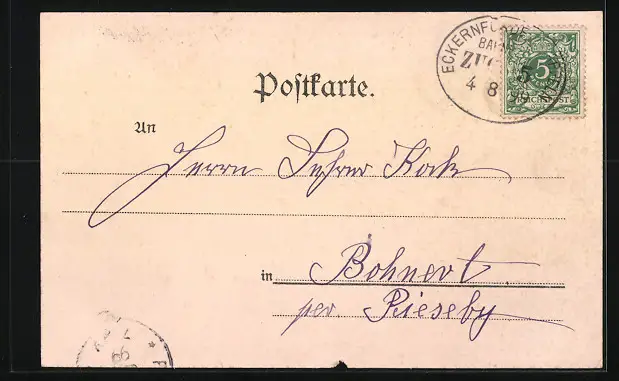 ECKERNFÖRDE
BAHN
ZUG 5
4 8 99
5
REICHSPOST
Postkarte.
An
Herrn Lehrer Kock
in Bohnert.
per. Rieseby